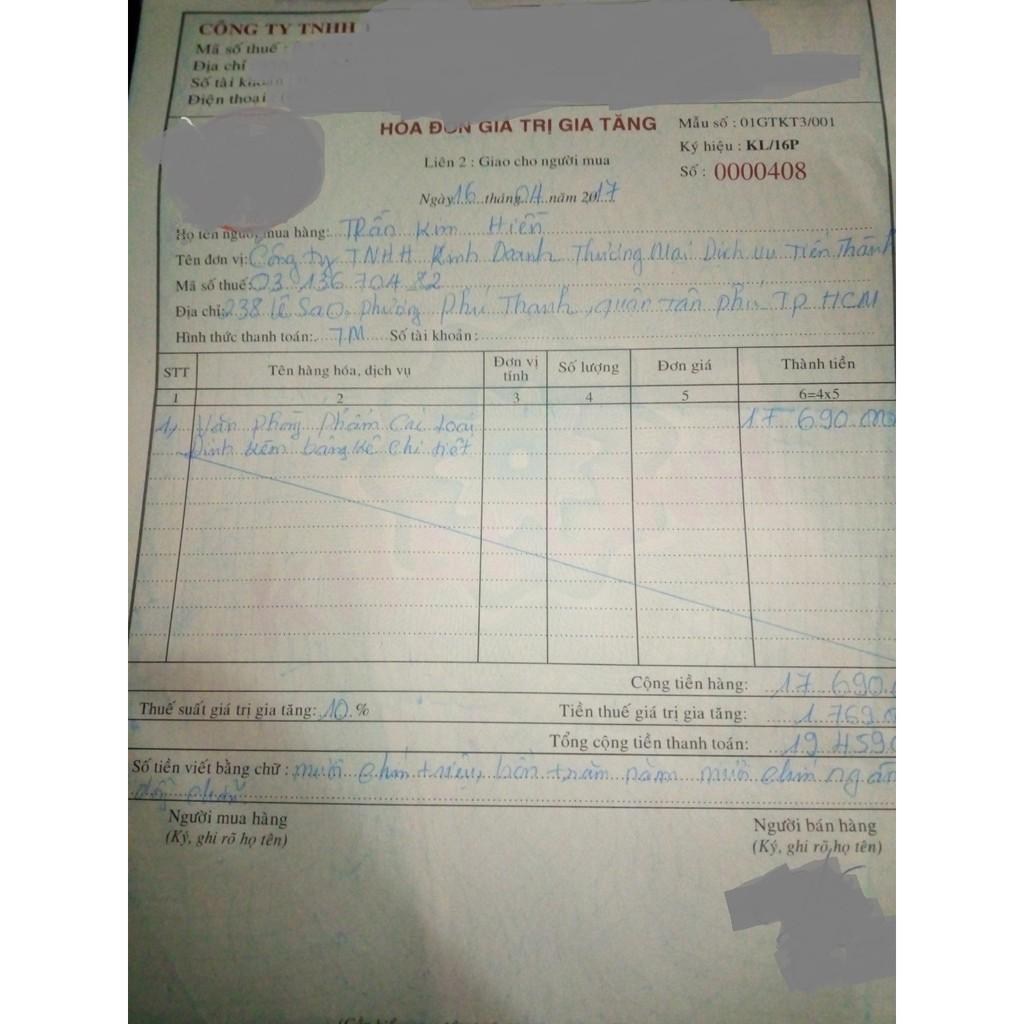 CÔNG TY TNHH
Mã số thuế :
Địa chỉ
Số tài khoản
Điện thoại :
HÓA ĐƠN GIÁ TRỊ GIA TĂNG
Mẫu số : 01GTKT3/001
Liên 2 : Giao cho người mua
Ký hiệu : KL/16P
Số : 0000408
Ngày 16 tháng 04 năm 2017
Họ tên người mua hàng: Trần Kim Hiền
Tên đơn vị: Công ty TNHH Kinh Doanh Thương Mại Dịch Vụ Tiến Thành
Mã số thuế: 03 136 704 82
Địa chỉ: 238 Lê Sao, phường Phú Thạnh, quận Tân phú, Tp HCM
Hình thức thanh toán: TM Số tài khoản:
STT Tên hàng hóa, dịch vụ Đơn vị tính Số lượng Đơn giá Thành tiền
1 2 3 4 5 6=4x5
1, Văn phòng phẩm Các loại 17 690 000
Đính kèm bảng kê chi tiết
Cộng tiền hàng: 17 690.
Thuế suất giá trị gia tăng: 10 % Tiền thuế giá trị gia tăng: 1 769.0
Tổng cộng tiền thanh toán: 19 459
Số tiền viết bằng chữ : mười chín triệu, bốn trăm năm mươi chín ngàn
đồng chẵn
Người mua hàng
(Ký, ghi rõ họ tên)
Người bán hàng
(Ký, ghi rõ họ tên)